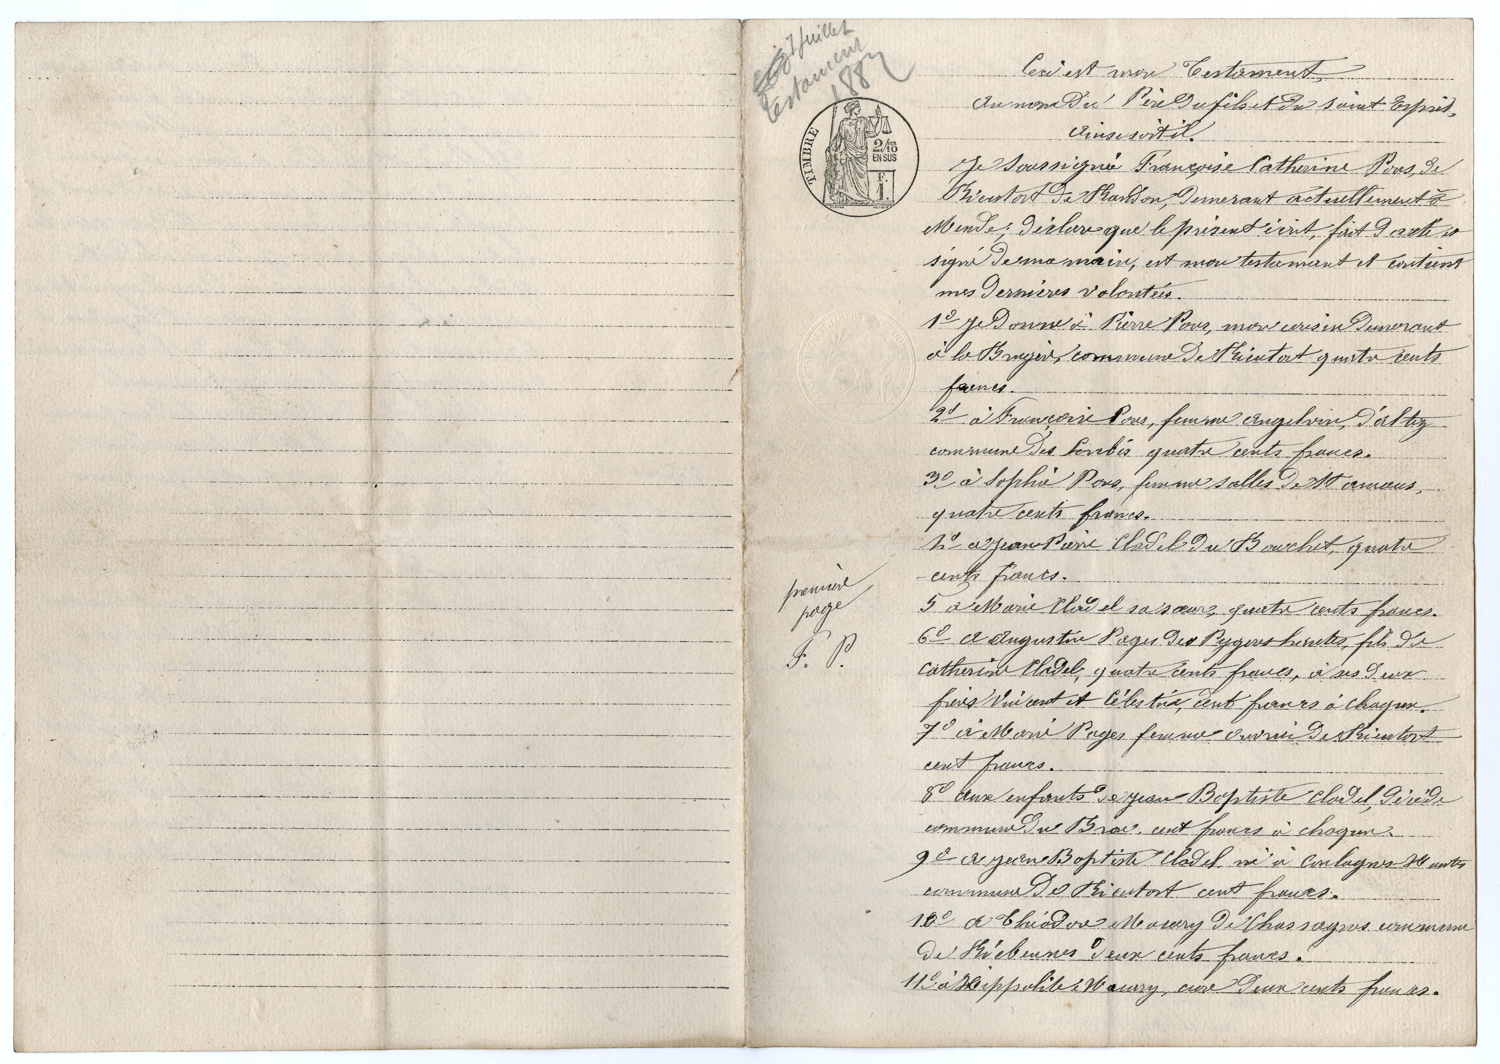 7 juillet
Testament
1887
TIMBRE
2/10
EN SUS
F.
1
Ceci est mon Testament,
au nom Du Père Du fils et Du Saint Esprit,
Ainsi soit il.
Je Soussignée Françoise Catherine Pons, De
Rieutort De Randon, Demerant actuellement à
Mende; Déclare que le présent écrit, fait Daté et
signé De ma main, est mon testament et contient
mes Dernières volontées.
1º Je Donne à Pierre Pons, mon cousin Demerant
à la Bruyère, commune De Rieutort quatre cents
francs.
2º à Françoise Pons, femme Angelvin, D'Altez
commune Des quatre cents francs.
3º à Sophie Pons, femme Salles De St amans,
quatre cents francs.
4º à Jean Pierre Cladel Du Bouchet, quatre
cents francs.
5 à Marie Cladel sa sœur, quatre cents francs.
6º A Augustin Pages Des hiretes, fils De
Catherine Cladel, quatre cents francs, à ses Deux
frères Vincent et Célestin, cent francs à chaqun.
7º à Marie Pages femme De Rieutort
cent francs.
8º Aux enfants De Jean Baptiste Cladel, Décédé
commune Du Born, cent francs à chaqun.
9º A Jean Baptiste Cladel né à Coulagnes Hautes
commune De Rieutort cent francs.
10º A Théodore Maury De Chassagnes commune
De Ribennes Deux cents francs.
11º à Hippolite Maury, curé Deux cents francs.
première
page
F. P.